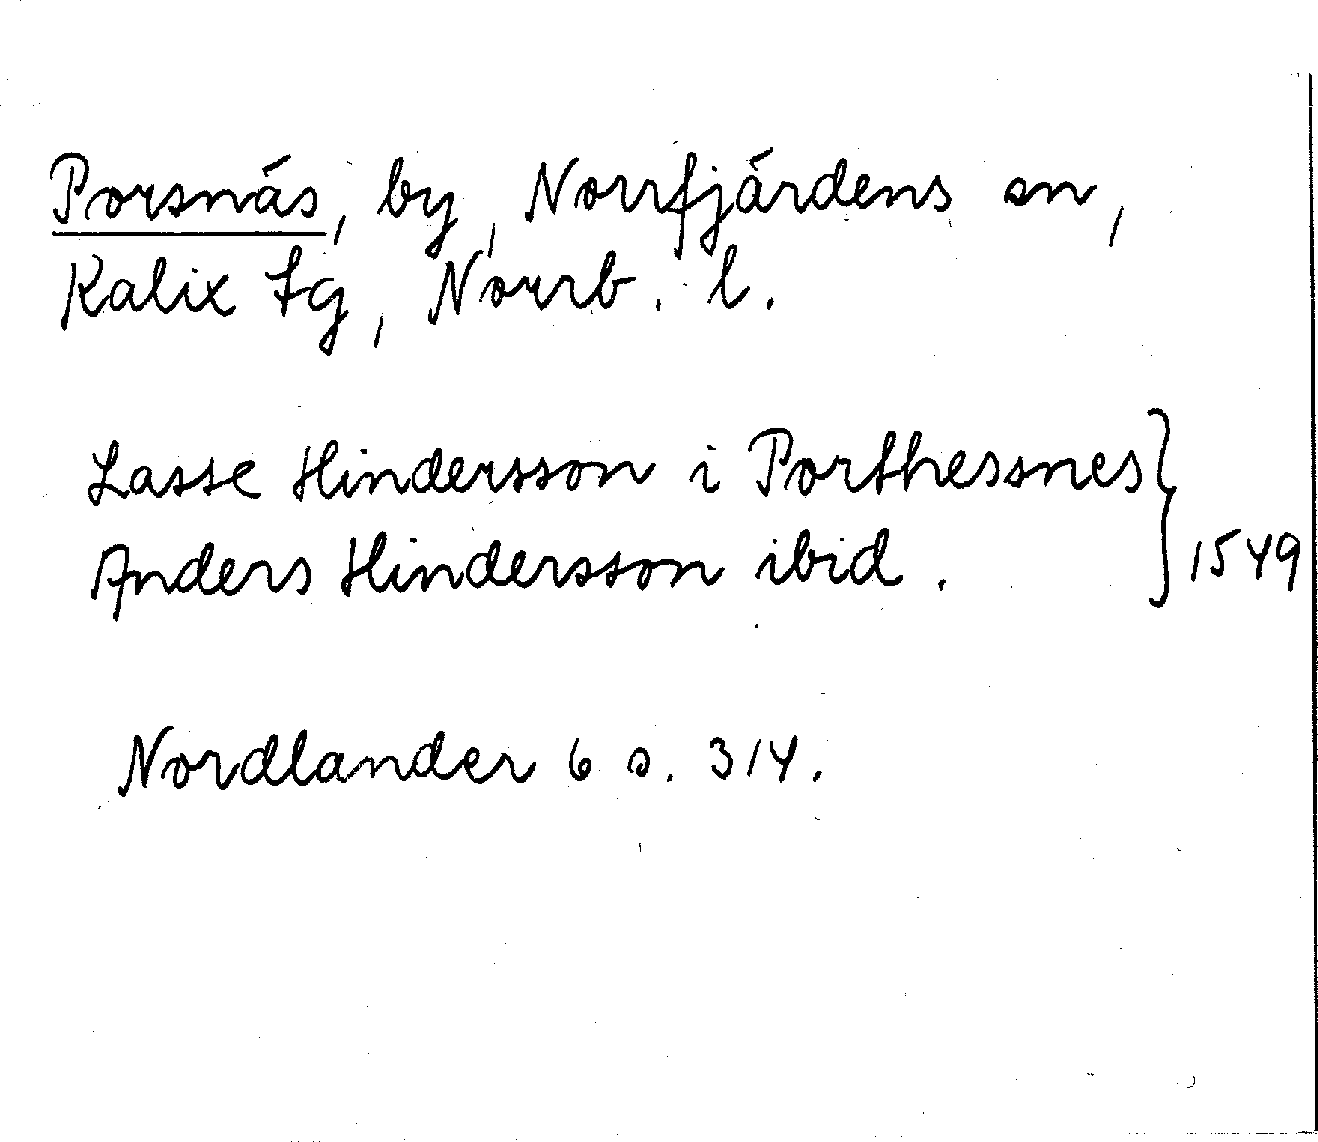 Porsnäs, by, Norrfjärdens sn,
Kalix tg, Norrb. l.
Lasse Hindersson i Porthessnes } 1549
Anders Hindersson ibid.
Nordlander 6 s. 314.